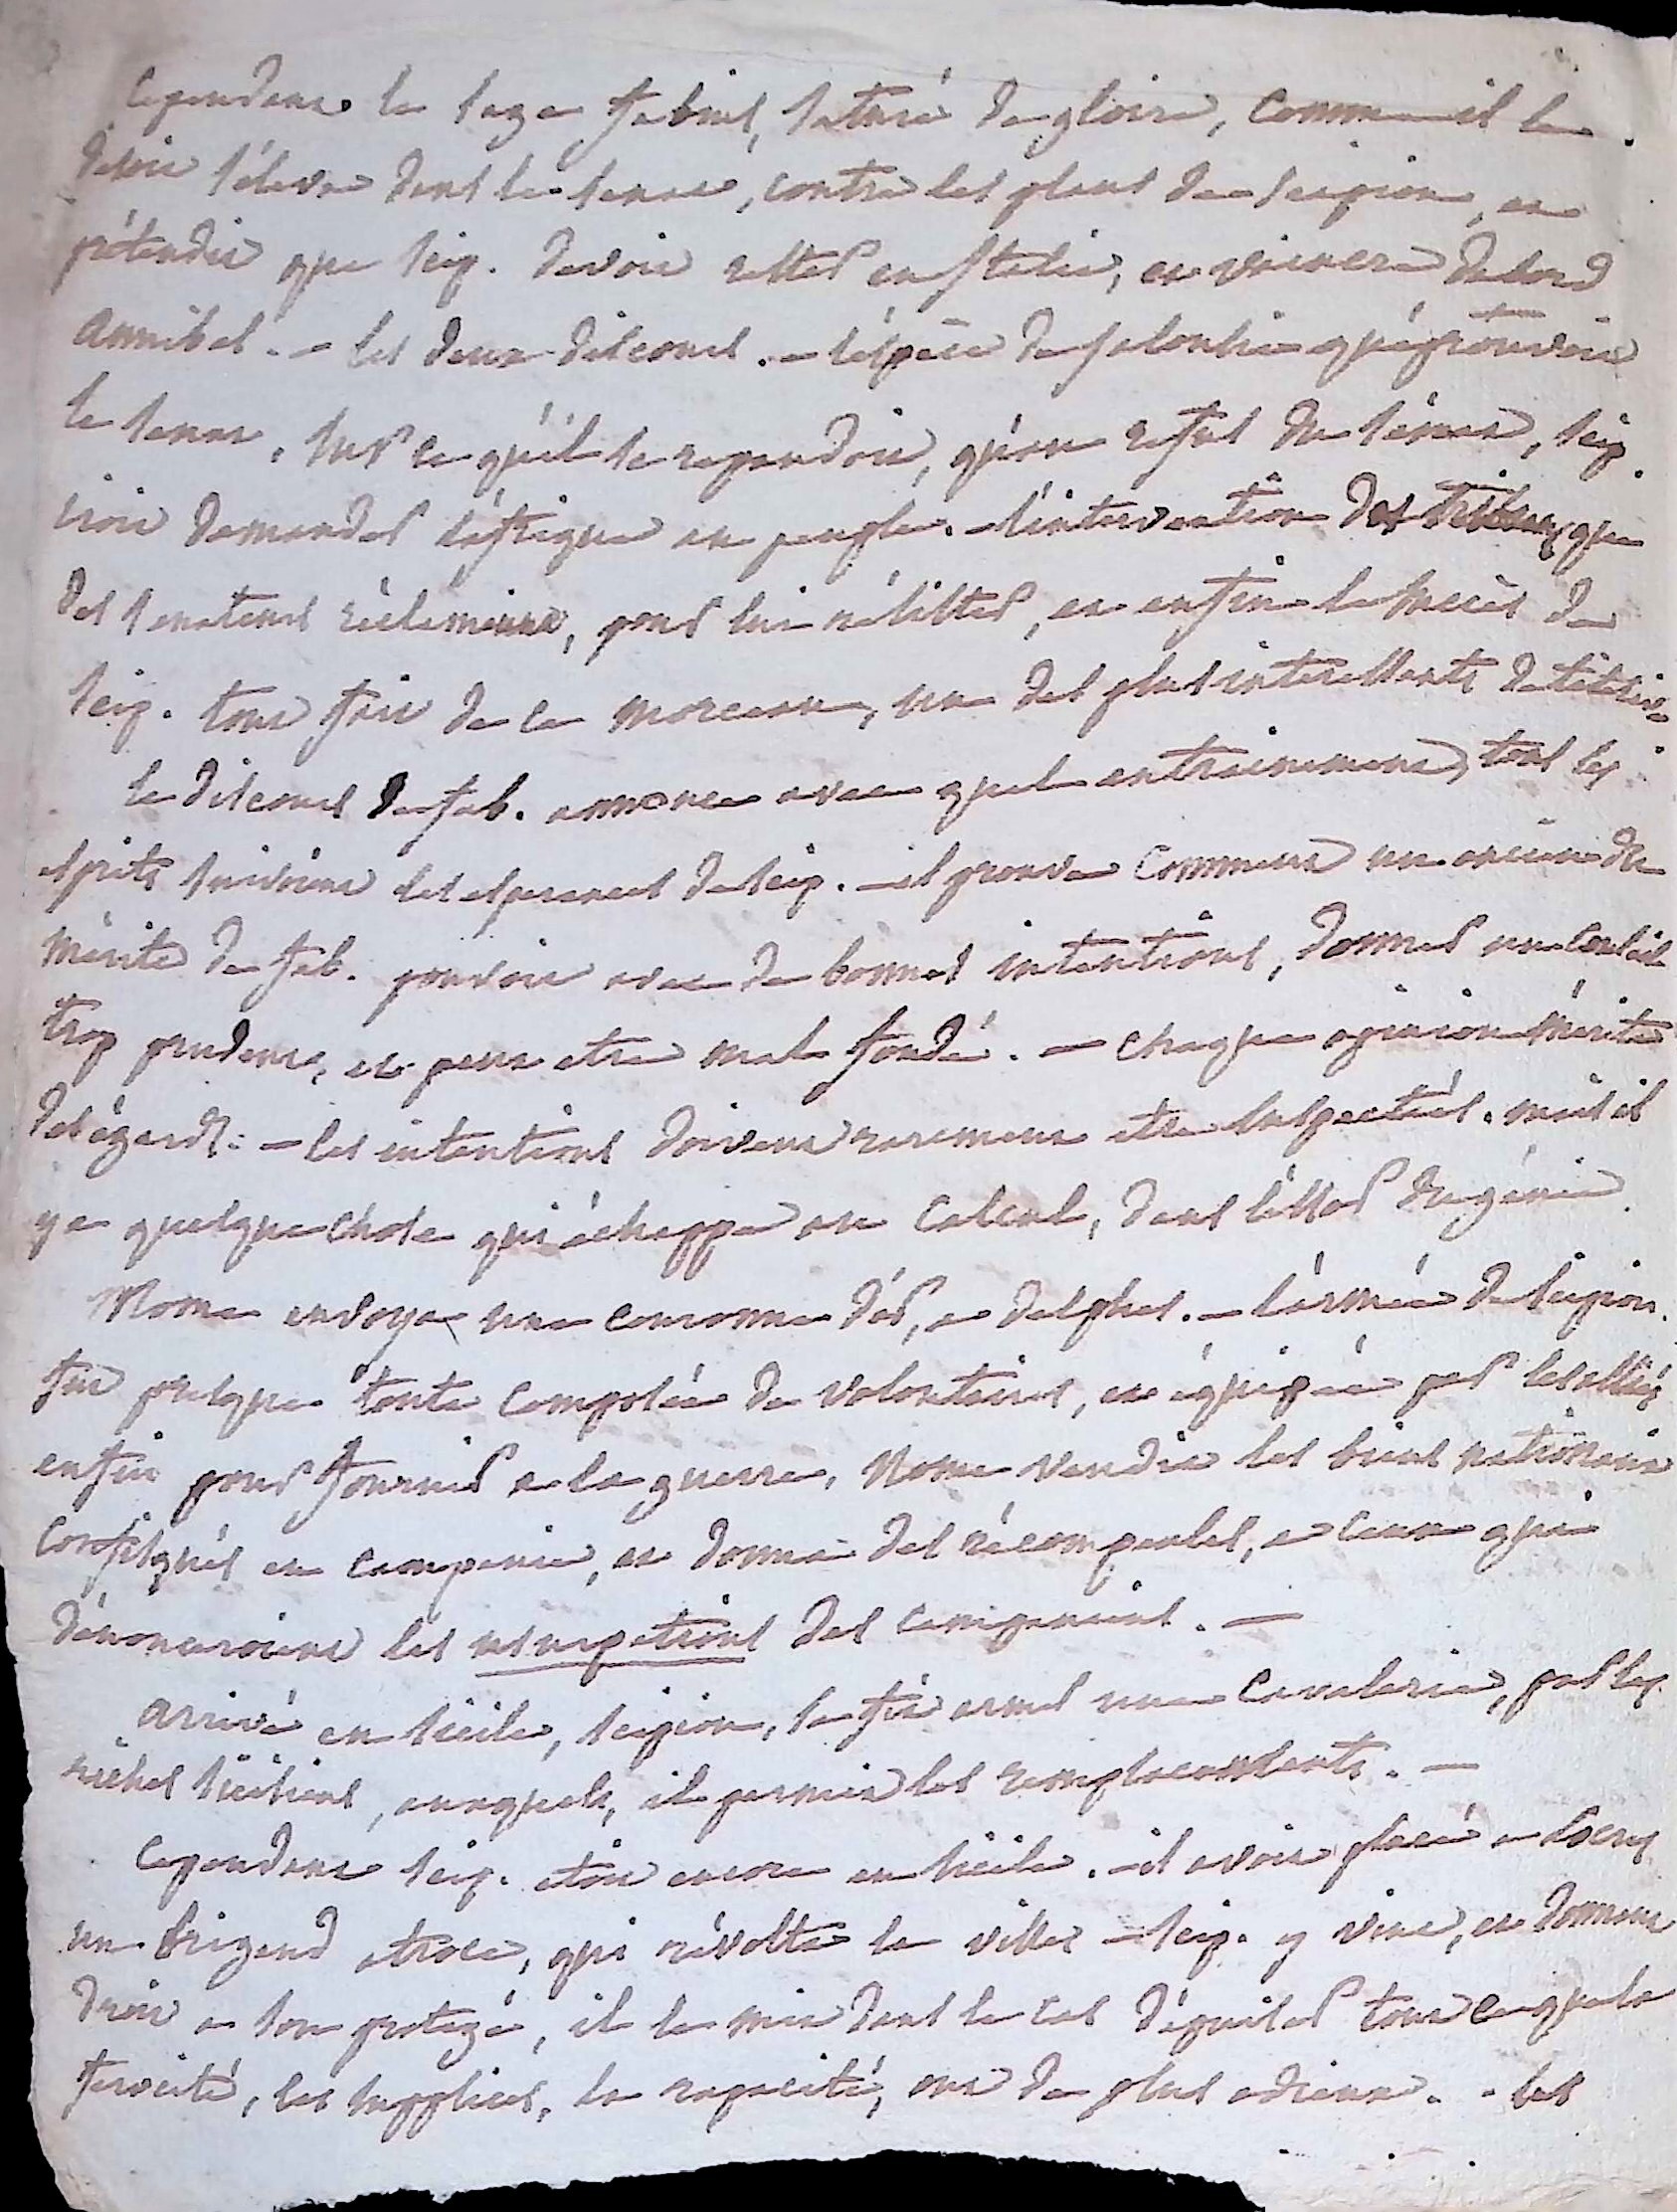 Cependant le sage fabius, saturé de gloire, comme il le
disoit s'éleva dans le senat, contre les plans de scipion, et
prétendit que scip. devoit rester en italie, et vaincre dabord
annibal. — les deux discours. — l'espèce de jalousie qu'éprouvoit
le senat, sur ce qu'il se repandoit, qu'au refus du sénat, scip.
iroit demander l'afrique au peuple. — l'intervention des tribuns que
des senateurs réclamèrent, pour lui résister, et enfin le succès de
scip. tout fait de ce morceau, un des plus interessants de titelive.
le discours de fab. annonce avec quel entrainement, tous les
esprits suivoient les esperances de scip. — il prouve comment un ancien du
mérite de fab. pouvoit avec de bonnes intentions, donner un conseil
trop prudent, et peut etre mal fondé. — chaque opinion mérite
des égards. — les intentions doivent rarement etre suspectées. mais il
y a quelque chose qui échappe au calcul, dans l'essor du génie.
Rome envoya une couronne d'or, a delphes. — l'armée de scipion
fut presque toute composée de volontaires, et équipée par les alliés
enfin pour fournir a la guerre, Rome vendit les biens nationaux
confisqués en campanie, et donna des récompenses, a ceux qui
dénonceroient les usurpations des campaniens. —
arrivé en sicile, scipion, se fit armer une cavalerie, par les
riches siciliens, auxquels, il permit les remplacements. —
Cependant scip. etoit encore en sicile. — il avoit placé a Locres
un brigand atroce, qui révolta la ville — scip. y vint, et donnant
droit a son protégé, il le mit dans le cas d'épuiser tout ce que la
ferocité, les supplices, la rapacité, ont de plus odieux. — les